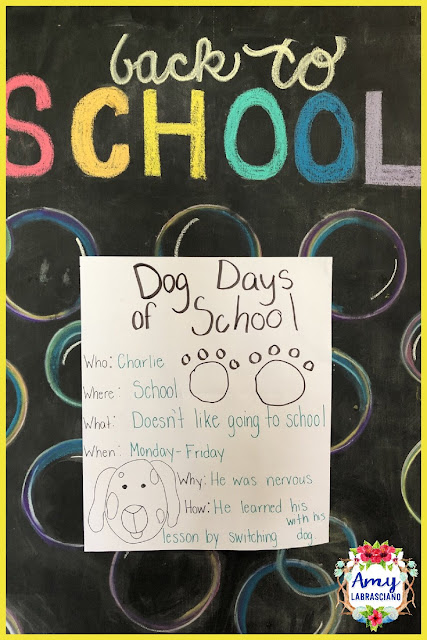 back to
SCHOOL
Dog Days
of School
Who: Charlie
Where: School
What: Doesn't like going to school
When: Monday-Friday
Why: He was nervous
How: He learned his
lesson by switching with his
dog.
Amy
LABRASCIANO